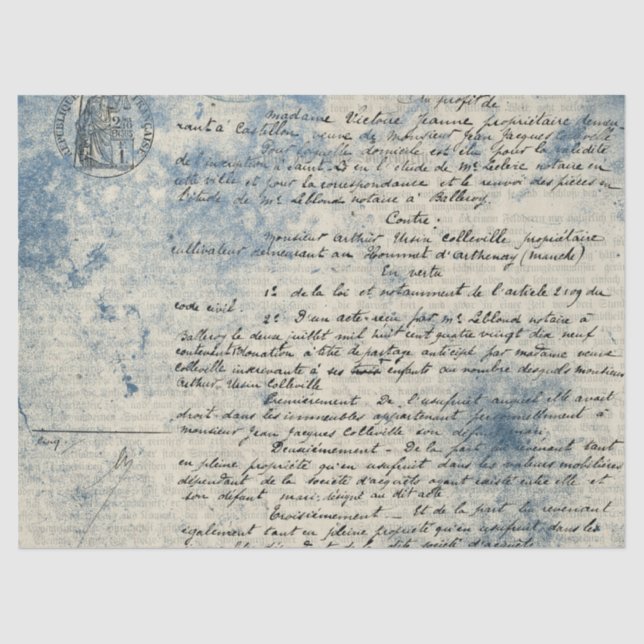 RÉPUBLIQUE FRANÇAISE
Au profit de
Madame Victoire Jeanne propriétaire demeu-
rant à Castillon, veuve de Monsieur Jean Jacques Colleville
Pour laquelle domicile est élu pour la validité
de l'inscription à Saint-Lô en l'étude de Me Leclerc notaire en
cette ville et pour la correspondance et le renvoi des pièces en
l'étude de Me Leblond notaire à Balleroy.
Contre
Monsieur Arthur Ursin Colleville propriétaire
cultivateur demeurant au Hommet d'Arthenay (Manche)
En vertu
1º de la loi et notamment de l'article 2109 du
code civil.
2º D'un acte reçu par Me Leblond notaire à
Balleroy le deux juillet mil huit cent quatre vingt dix neuf
contenant Donation à titre de partage anticipé par madame veuve
Colleville inscrivante à ses enfants au nombre desquels monsieur
Arthur Ursin Colleville
Premièrement. De l'usufruit auquel elle avait
droit dans les immeubles appartenant personnellement à
monsieur Jean Jacques Colleville son défunt mari
Deuxièmement - De la part lui revenant tant
en pleine propriété qu'en usufruit dans les valeurs mobilières
dépendant de la société d'acquêts ayant existé entre elle et
son défunt mari, désigné au dit acte
Troisièmement - Et de la part lui revenant
également tant en pleine propriété qu'en usufruit dans les
société d'acquêts